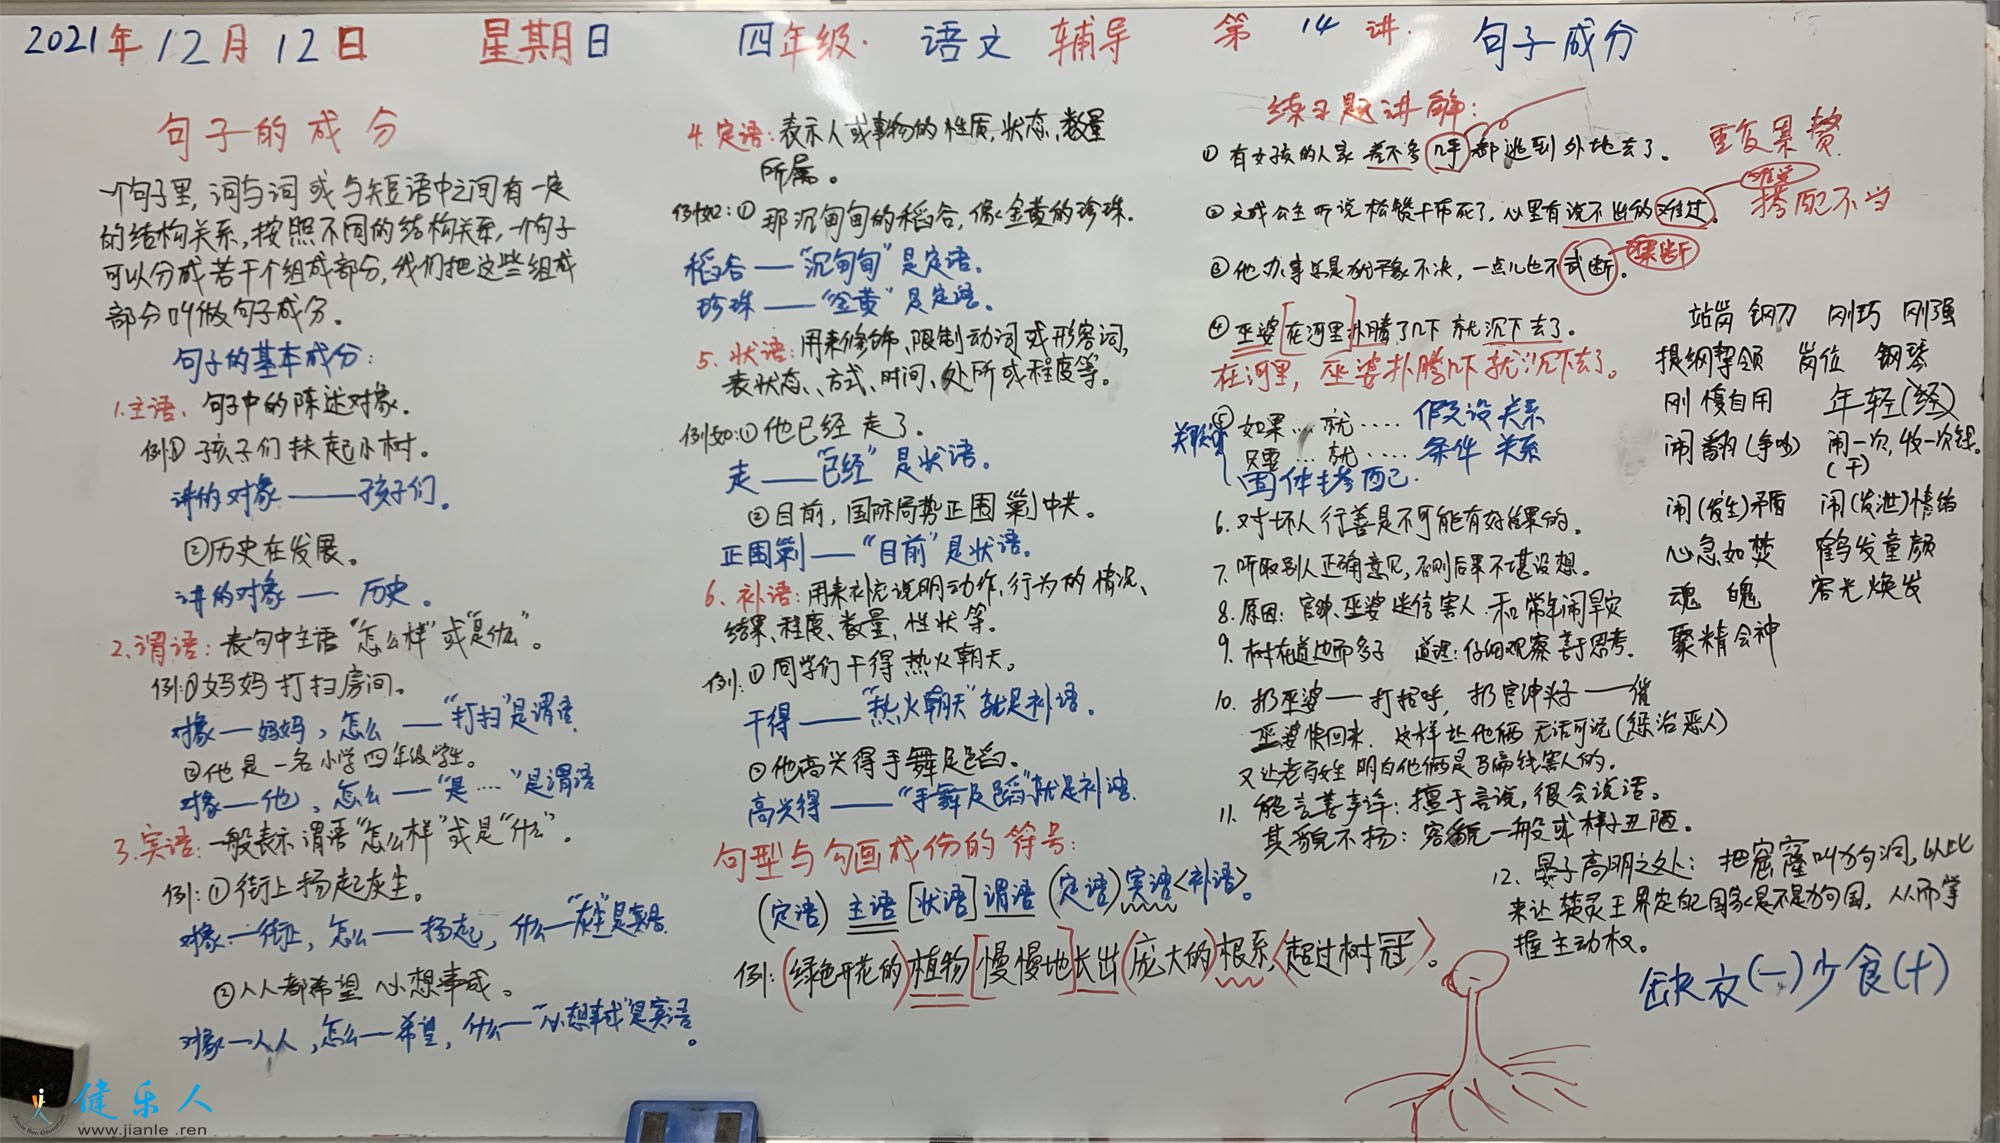 2021年12月12日 星期日 四年级 语文 辅导 第 14 讲. 句子成分
句子的成分
一个句子里,词与词或与短语中之间有一定
的结构关系,按照不同的结构关系,一个句子
可以分成若干个组成部分,我们把这些组成
部分叫做句子成分。
句子的基本成分:
1.主语、句子中的陈述对象.
例①孩子们扶起小树。
讲的对象——孩子们.
②历史在发展。
讲的对象——历史。
2.谓语:表句中主语“怎么样”或“是什么”。
例:①妈妈打扫房间。
对象—妈妈,怎么—“打扫”是谓语.
②他是一名小学四年级学生。
对象—他,怎么—“是……”是谓语
3.宾语:一般表示谓语“怎么样”或是“什么”.
例:①街上扬起灰尘。
对象—街上,怎么—扬起,什么—“灰尘”是宾语.
②人人都希望心想事成。
对象—人人,怎么—希望,什么—“心想事成”是宾语。
4.定语:表示人或事物的性质,状态、数量
所属。
例如:①那沉甸甸的稻谷,像金黄的珍珠.
稻谷——“沉甸甸”是定语.
珍珠——“金黄”是定语.
5.状语:用来修饰、限制动词或形容词,
表状态、方式、时间、处所或程度等。
例如:①他已经走了.
走——“已经”是状语.
②目前,国际局势正围剿中共。
正围剿——“目前”是状语.
6.补语:用来补充说明动作,行为的情况、
结果、程度、数量,性状等.
例:①同学们干得热火朝天。
干得——“热火朝天”就是补语.
②他高兴得手舞足蹈.
高兴得——“手舞足蹈”就是补语.
句型与勾画成份的符号:
(定语)主语[状语]谓语(定语)宾语<补语>。
例:(绿色开花的)植物[慢慢地]长出(庞大的)根系<超过树冠>。
练习题讲解:
①有女孩的人家差不多几乎都逃到外地去了。
重复累赘
②文成公主听说松赞干布死了,心里有说不出的难过.
难受
搭配不当
③他办事总是犹豫不决,一点儿也不武断.
果断
④巫婆[在河里]扑腾了几下就沉下去了.
在河里,巫婆扑腾几下就沉下去了。
⑤如果…就…… 假设关系
关联词
只要…就…… 条件关系
固体搭配.
6.对坏人行善是不可能有好结果的。
7.听取别人正确意见,否则后果不堪设想.
8.原因:官绅、巫婆迷信害人和常年闹旱灾
9.树在道边而多子 道理:仔细观察善于思考.
10.扔巫婆—打招呼,扔官绅头子—催
巫婆快回来.这样让他俩无话可说(惩治恶人)
又让老百姓明白他俩是骗钱害人的.
11.能言善辩:擅于言说,很会说话。
其貌不扬:容貌一般或样子丑陋。
12.晏子高明之处:把窟窿叫狗洞,以此
来让楚灵王界定自己国家是不是狗国,从而掌
握主动权。
站岗 钢刀 刚巧 刚强
提纲挈领 岗位 钢琴
刚愎自用 年轻(经)
闹翻(争吵) 闹一次,收一次钱.
(干)
闹(发生)矛盾 闹(发泄)情绪
心急如焚 鹤发童颜
魂 魄 容光焕发
聚精会神
缺衣(一)少食(十)
健乐人
www.jianle.ren